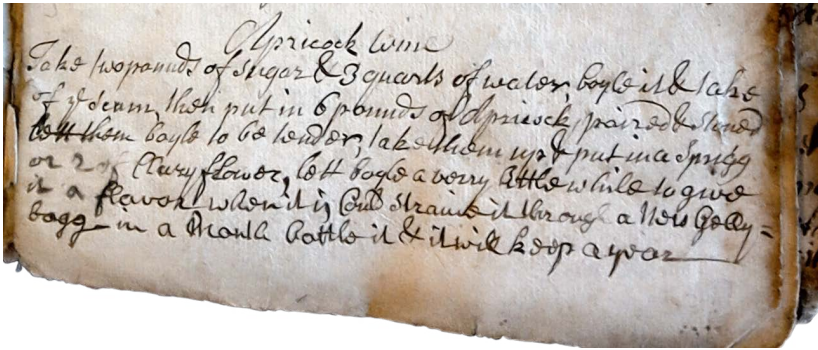 Apricock Wine
Take two pounds of Sugar & 3 quarts of water boyle it & take
of ye Scum, then put in 6 pounds of Apricock paired & stoned
lett them boyle to be tender, take them up & put in a Sprigg
or 2 of Clary flower, lett boyle a verry little while to give
it a flavor when it is Cold Straine it through a New Gelly=
bagg in a Month bottle it & it will keep a year